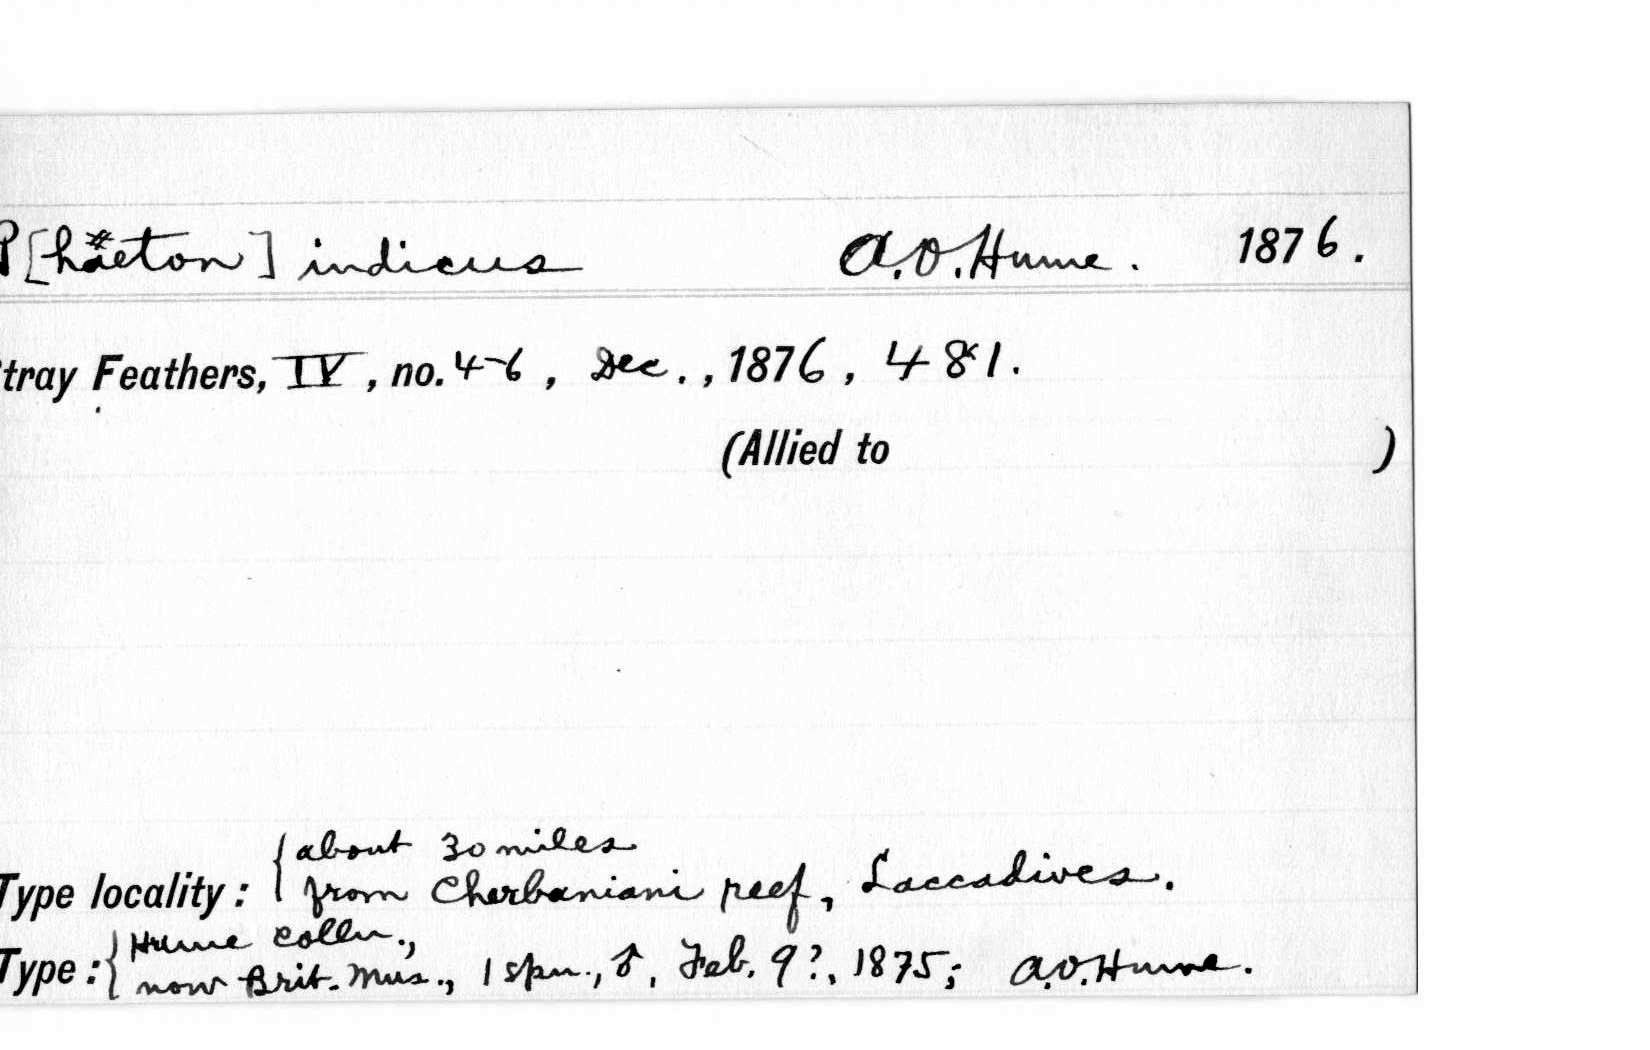 P[häeton] indicus A.O. Hume. 1876.
tray Feathers, IV, no. 4-6, Dec., 1876, 481.
(Allied to )
about 30 miles
Type locality: from Cherbaniani reef, Laccadives.
Hume colln.,
Type: now Brit. Mus., 1 spn., ♂, Feb. 9?, 1875; A.O. Hume.